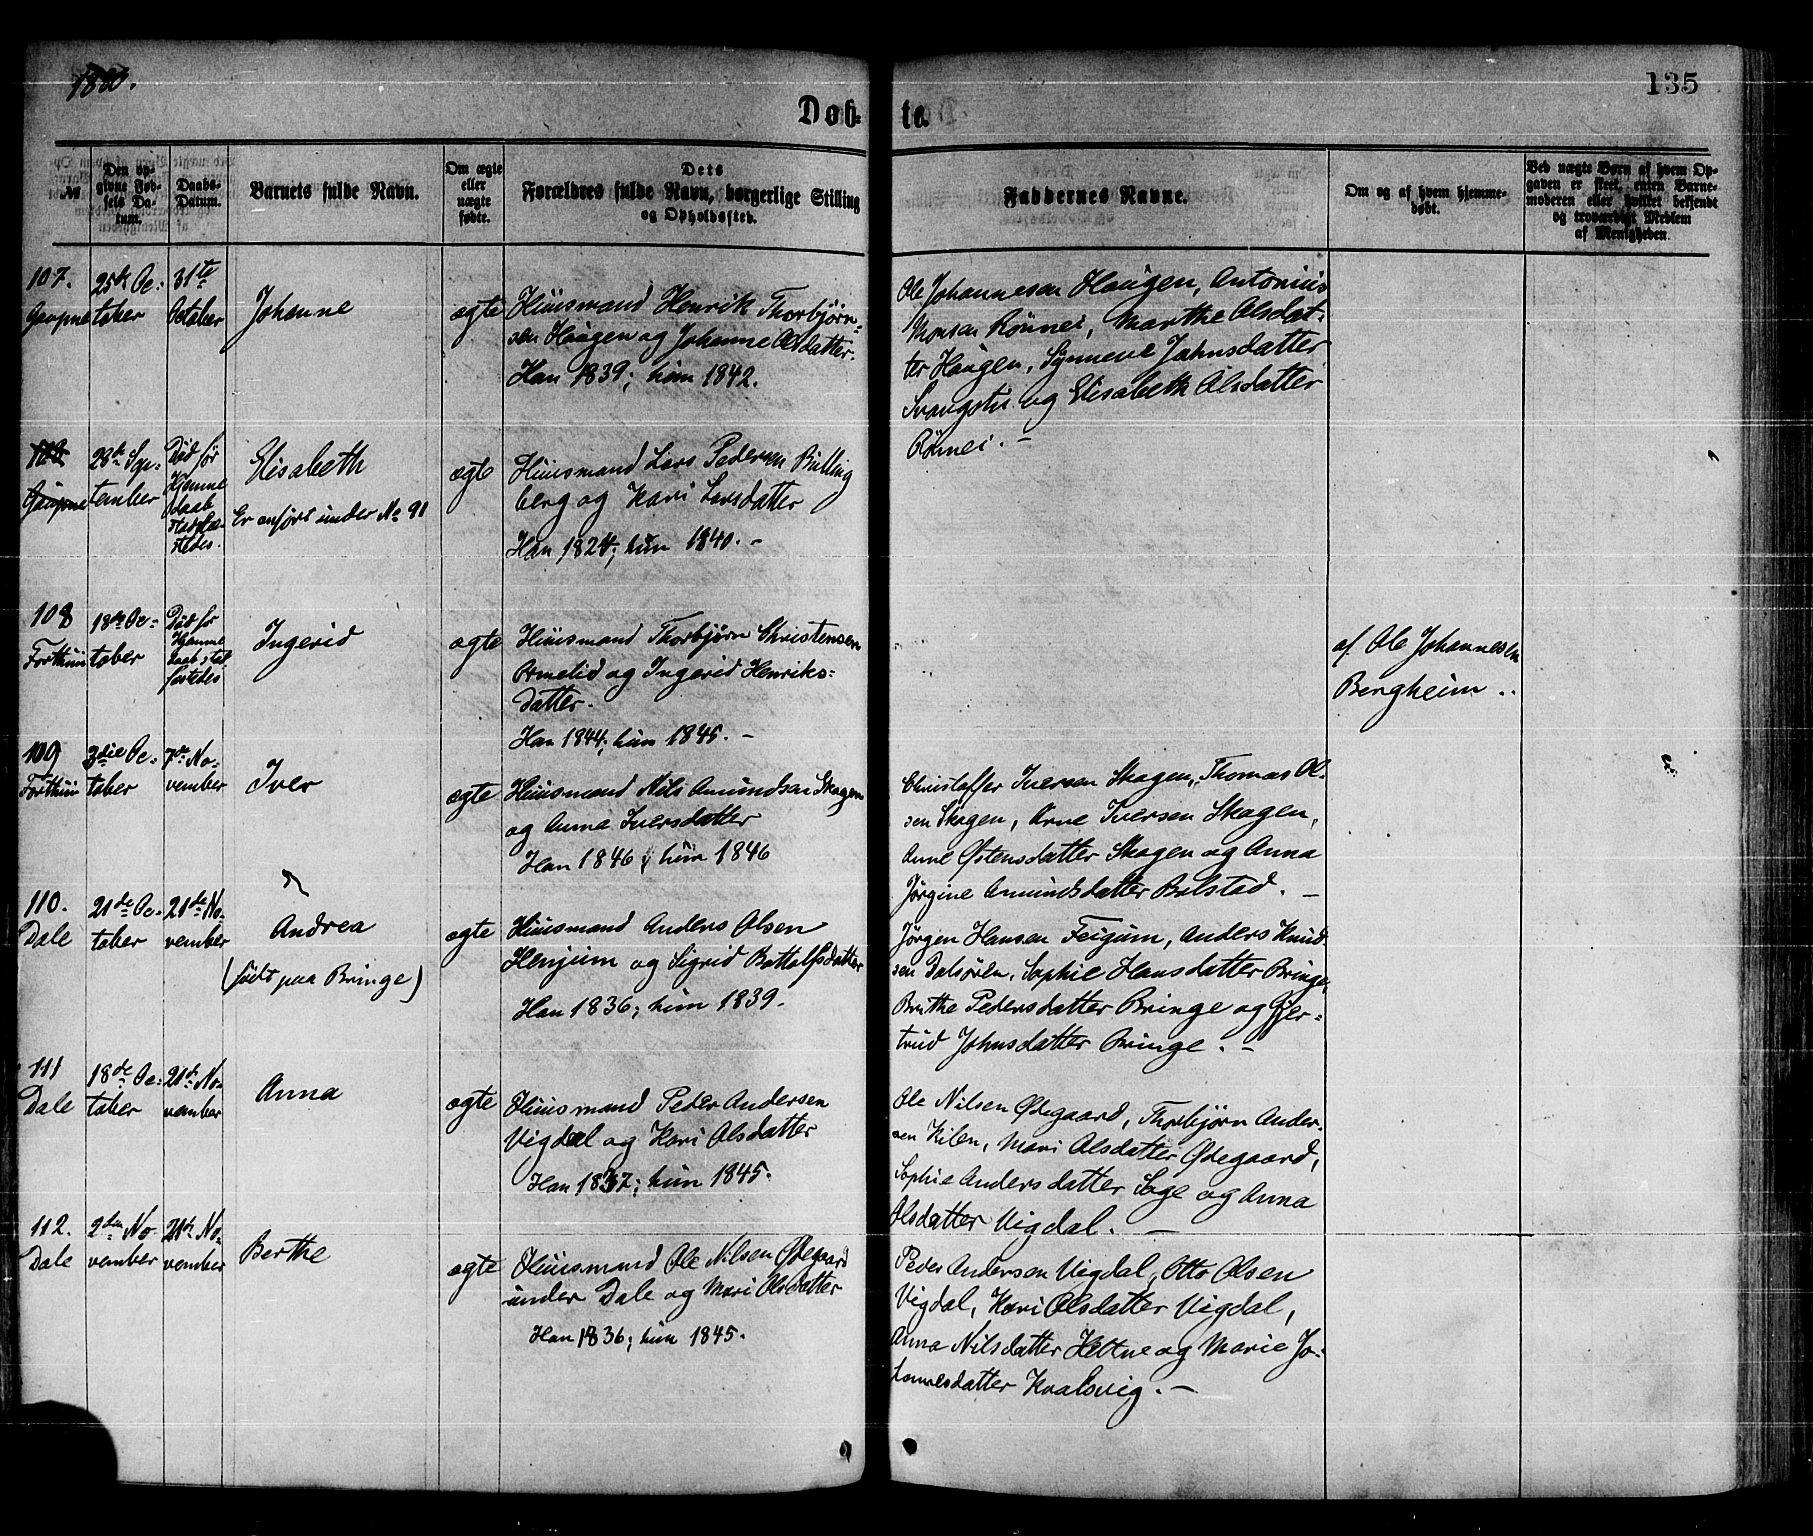 1880.
135
Døb- te.
№
Den op-
givne Fød-
sels Da-
tum.
Daabs-
Datum.
Barnets fulde Navn.
Om ægte
eller
uægte
fødte.
Dets
Forældres fulde Navn, borgerlige Stilling
og Opholdssted.
Faddernes Navne.
Om og af hvem hjemme-
døbt.
Ved uægte Børn af hvem Op-
gaven er skeet, enten Barne-
moderen eller hvilket bekjendt
og troværdigt Medlem
af Menigheden.
107.
Gaupne
25de Oc-
tober
31te
October
Johanne
ægte
Huusmand Henrik Thorbjørn-
sen Haugen og Johanne Olsdatter.
Han 1839; hun 1842.
Ole Johannesen Haugen, Antonius
Monsen Rønnei, Marthe Olsdat-
ter Haugen, Synneve Johnsdatter
og Elisabeth Olsdatter
Rønnei. —
108
Gaupne
28de Sep-
tember
Død før
Hjemme
daab
stedes.
Elisabeth
Er anført under No 91
ægte
Huusmand Lars Pedersen Bulling
berg og Kari Larsdatter
Han 1824; hun 1840. —
108
Forthun
18de Oc-
tober
Død før
Hjemme
daab
Ingerid
ægte
Huusmand Thorbjørn Christensen
Ormelid og Ingerid Henriks-
datter.
Han 1844; hun 1845. —
af Ole Johannesen
Bergheim ..
109
Forthun
3die Oc-
tober
7de No-
vember
Iver
ægte
Huusmand Nils Amundsen Skagen
og Anna Iversdatter
Han 1846; hun 1846
Christoffer Iversen Skagen, Thomas Ol-
sen Skagen, Arne Iversen Skagen,
Anne Østensdatter Skagen og Anna
Jørgine Amundsdatter Bolstad. —
110.
Dale
21de Oc-
tober
21de No-
vember
Andrea
(født paa Bringe)
ægte
Huusmand Anders Olsen
Henjum og Sigrid Bottolfsdatter
Han 1836; hun 1839.
Jørgen Hansen Feigum, Anders Knud
sen Dalsøren, Sophie Hansdatter Bringe,
Berthe Pedersdatter Bringe og Gjer-
trud Johnsdatter Bringe. —
111
Dale
18de Oc-
tober
21de No-
vember
Anna
ægte
Huusmand Peder Andersen
Vigdal og Kari Olsdatter
Han 1837; hun 1845.
Ole Nilsen Ødegaard, Thorbjørn Ander-
sen Kilen, Mari Olsdatter Ødegaard,
Sophie Andersdatter Soge og Anna
Olsdatter Vigdal. —
112.
Dale
2den No
vember
21de No-
vember
Berthe
ægte
Huusmand Ole Nilsen Ødegaard
under Dale og Mari Olsdatter
Han 1836; hun 1845.
Peder Andersen Vigdal, Otto Olsen
Vigdal, Kari Olsdatter Vigdal,
Anna Nilsdatter Kettne og Marie Jo-
hannesdatter Kvalsvig. —